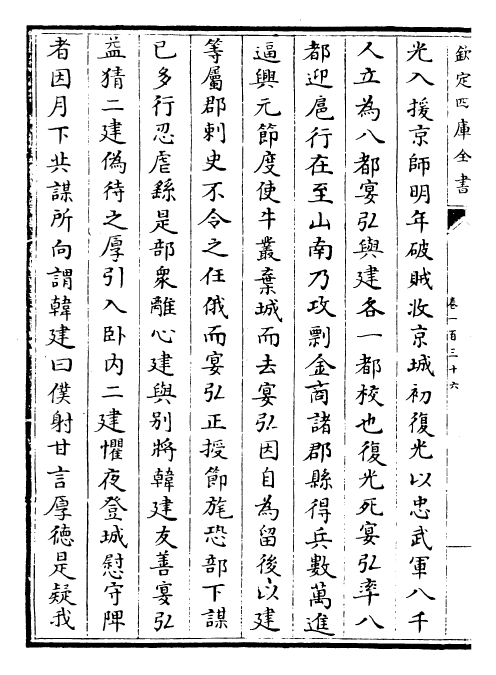 欽定四庫全書
卷一百三十六
光入援京師明年破賊收京城初復光以忠武軍八千
人立為八都宴弘與建各一都校也復光死宴弘率八
都迎扈行在至山南乃攻剽金商諸郡縣得兵數萬進
逼興元節度使牛叢棄城而去宴弘因自為留後以建
等屬郡刺史不令之任俄而宴弘正授節旄恐部下謀
已多行忍虐繇是部衆離心建與别將韓建友善宴弘
益猜二建偽待之厚引入卧内二建懼夜登城慰守陴
者因月下共謀所向謂韓建曰僕射甘言厚德是疑我